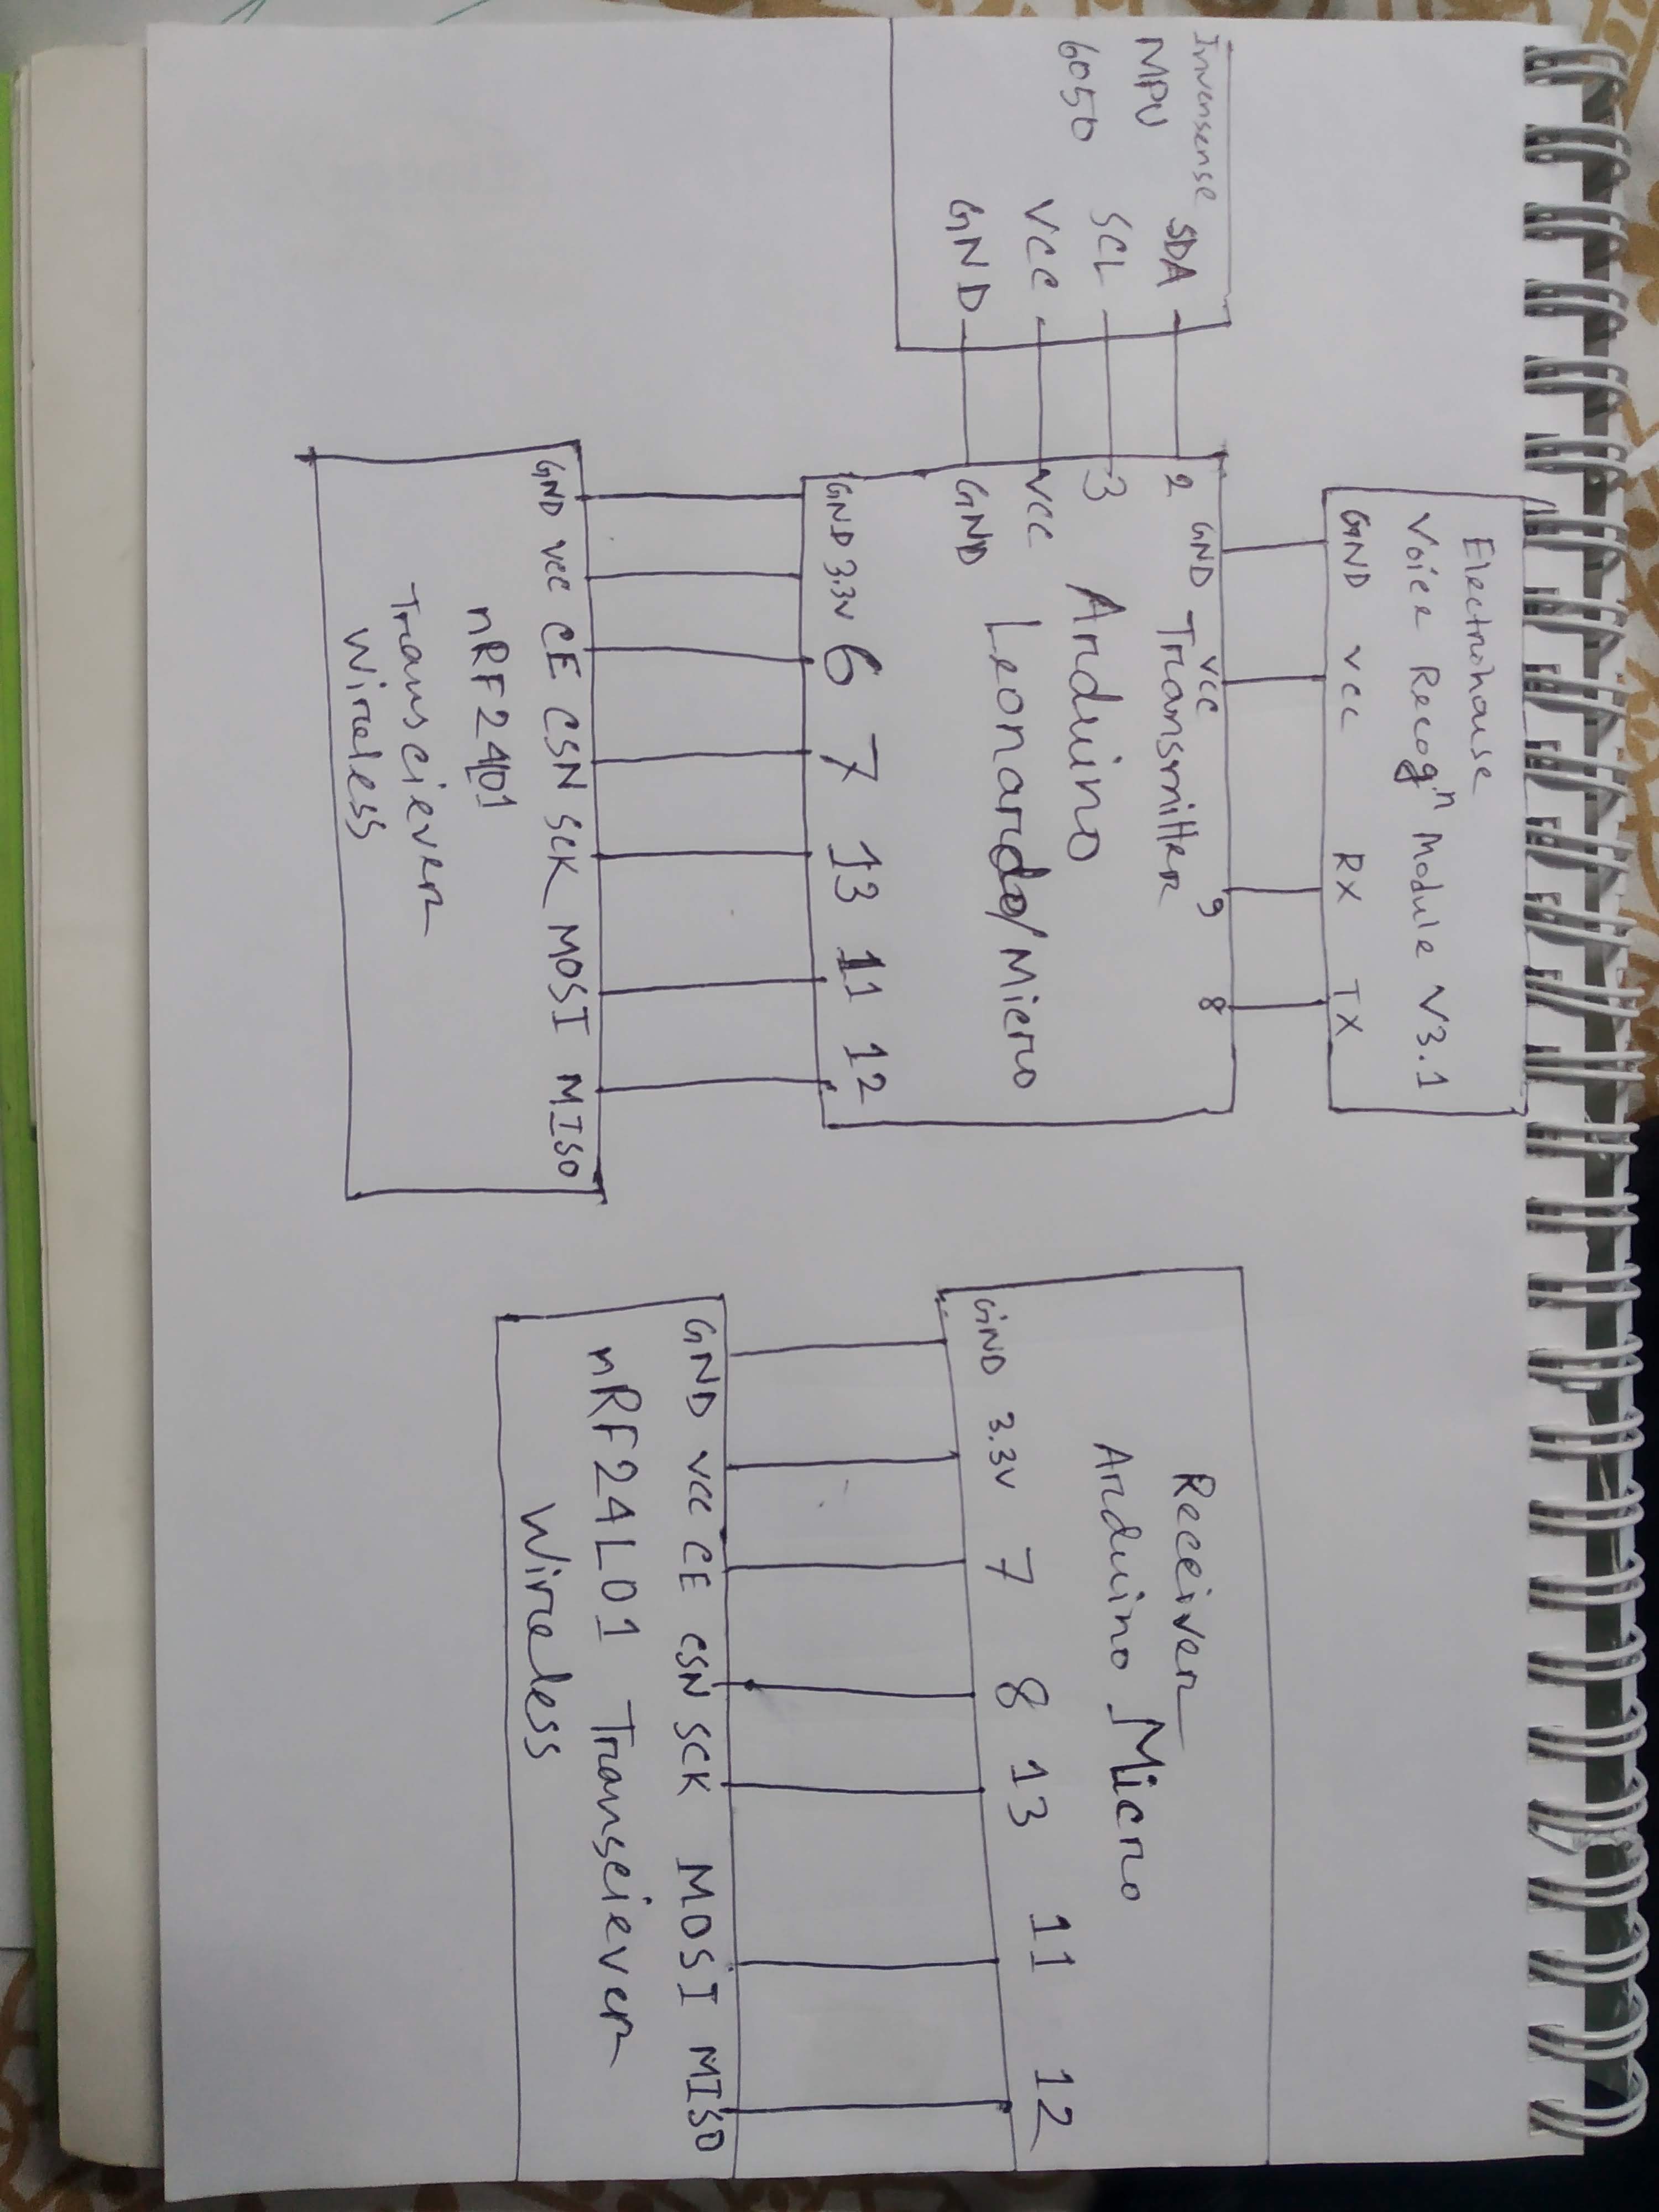 Electrohouse
Voice Recogn Module V3.1
GND VCC RX TX
Invensense
MPU
6050
SDA
SCL
VCC
GND
GND VCC 9 8
2
3
VCC
GND
Transmitter
Arduino
Leonardo/Micro
GND 3.3V 6 7 13 11 12
GND VCC CE CSN SCK MOSI MISO
nRF2401
Transciever
Wireless
Receiver
Arduino Micro
GND 3.3V 7 8 13 11 12
GND VCC CE CSN SCK MOSI MISO
nRF24L01 Transciever
Wireless